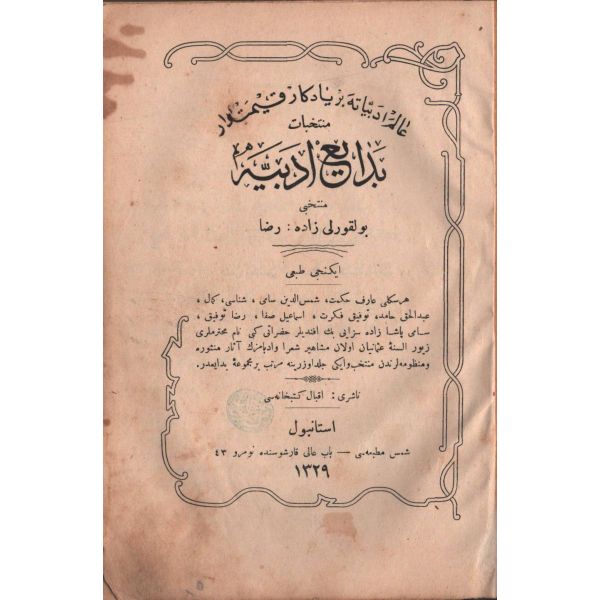 عالم ادبیاته بر یادکار قیمتدار
منتخبات
بدایع ادبیه
منتخبی
بولقورلی زاده : رضا
ایکنجی طبعی
هرسکلی عارف حکمت ، شمس‌الدین سامی ، شناسی ، کمال ،
عبدالحق حامد ، توفیق فکرت ، اسماعیل صفا ، رضا توفیق ،
سامی پاشا زاده سزایی بك افندیلر حضراتی کبی نام محترملری
زیور السنهٔ عثمانیان اولان مشاهیر شعرا و ادبامزك آثار منثوره
و منظومه‌لرندن منتخب و ایکی جلد اوزرینه مرتب بر مجموعهٔ بدایعدر.
ناشری : اقبال کتبخانه‌سی
استانبول
شمس مطبعه‌سی — باب عالی قارشوسنده نومرو ٤٣
١٣٢٩